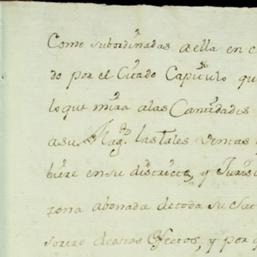 Como subordinadas a ella en c
do por el Citado Capitulo que
lo que mira a las Cantidades
a su Magd. las tales ventas
biere en su districto, y Juris
zona abonada de toda su Sat
sorero de estos efectos, y por q